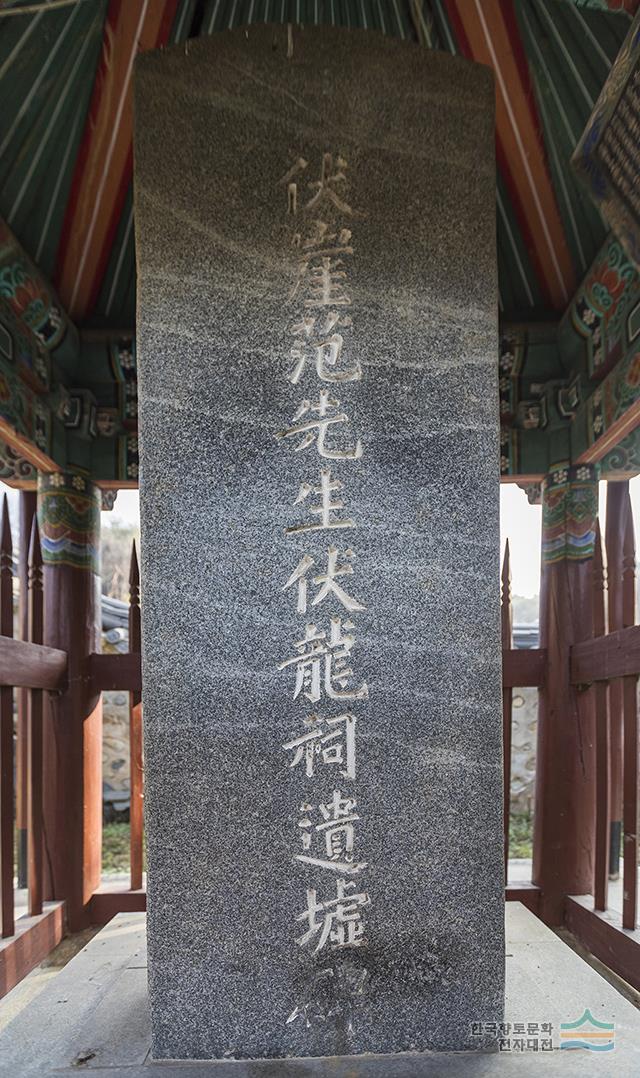 伏崖范先生伏龍祠遺墟碑
한국향토문화
전자대전